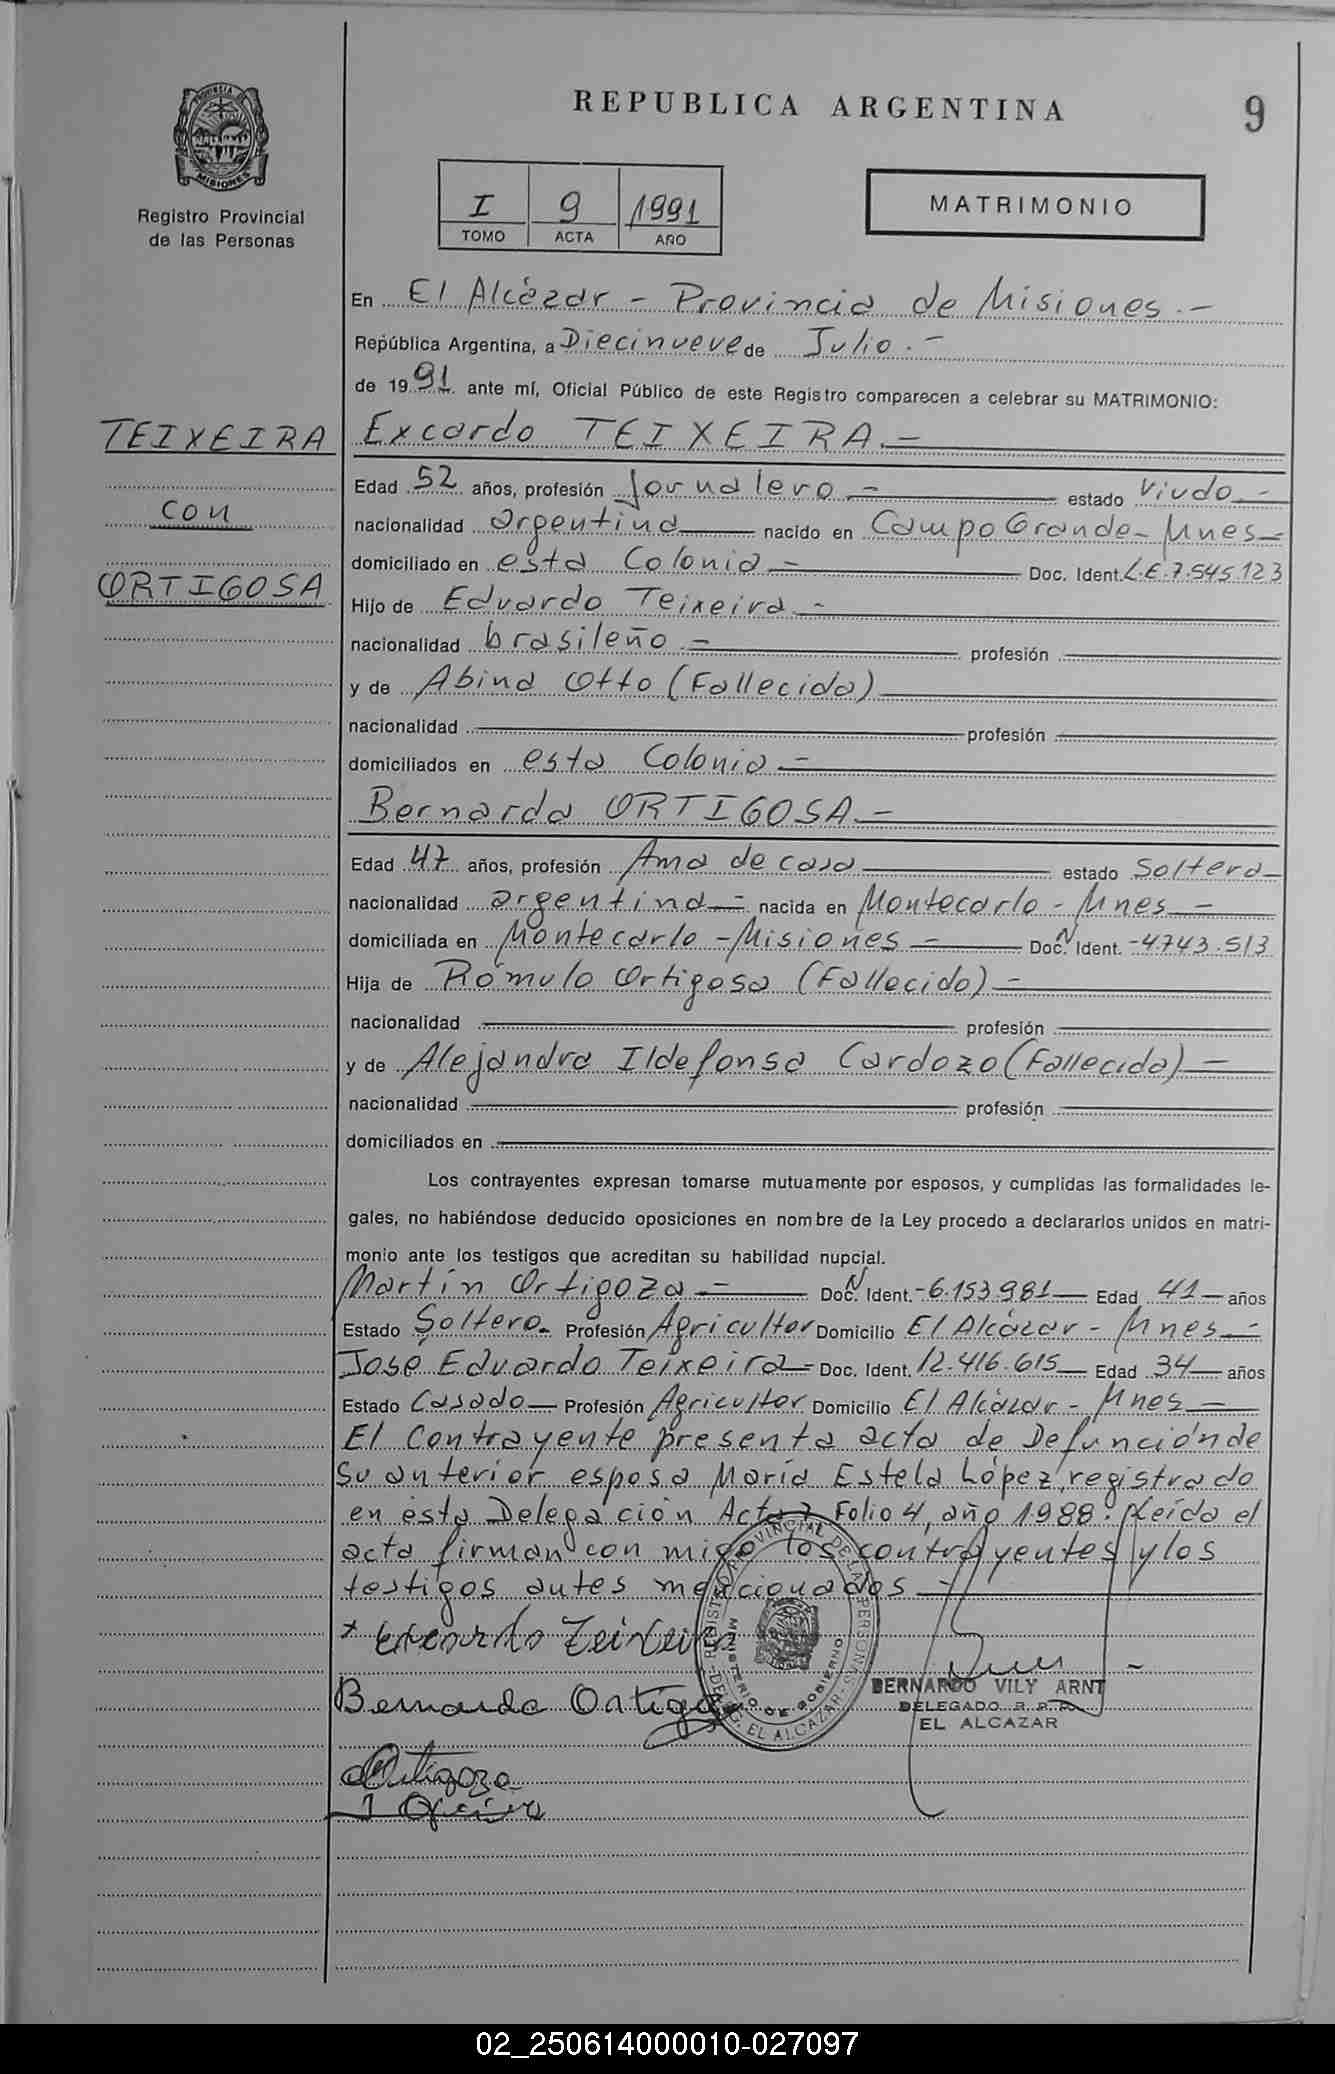 REPUBLICA ARGENTINA
9
PROVINCIA DE
MISIONES
Registro Provincial
de las Personas
I 9 1991
TOMO ACTA AÑO
MATRIMONIO
En El Alcázar - Provincia de Misiones.-
República Argentina, a Diecinueve de Julio.-
de 1991 ante mí, Oficial Público de este Registro comparecen a celebrar su MATRIMONIO:
TEIXEIRA
con
ORTIGOSA
Excardo TEIXEIRA.-
Edad 52 años, profesión Jornalero - estado Viudo.-
nacionalidad argentina nacido en Campo Grande - Mnes-
domiciliado en esta Colonia - Doc. Ident. L.E.7.545.123
Hijo de Eduardo Teixeira -
nacionalidad brasileño.- profesión
y de Abina Otto (Fallecida)
nacionalidad profesión
domiciliados en esta Colonia.-
Bernarda ORTIGOSA.-
Edad 47 años, profesión Ama de casa estado Soltera-
nacionalidad argentina- nacida en Montecarlo - Mnes -
domiciliada en Montecarlo - Misiones - Doc. N Ident. -4743.513
Hija de Rómulo Ortigosa (Fallecido) -
nacionalidad profesión
y de Alejandra Ildefonsa Cardozo (Fallecida) -
nacionalidad profesión
domiciliados en
Los contrayentes expresan tomarse mutuamente por esposos, y cumplidas las formalidades le-
gales, no habiéndose deducido oposiciones en nombre de la Ley procedo a declararlos unidos en matri-
monio ante los testigos que acreditan su habilidad nupcial.
Martín Ortigoza - Doc. N Ident. -6.153.981- Edad 41- años
Estado Soltero- Profesión Agricultor Domicilio El Alcázar - Mnes -
José Eduardo Teixeira - Doc. Ident. 12.416.615- Edad 34- años
Estado Casado- Profesión Agricultor Domicilio El Alcázar - Mnes -
El Contrayente presenta acta de Defunción de
su anterior esposa María Estela López, registrado
en esta Delegación Acta 7 Folio 4, año 1988. Leída el
acta firman con migo los contrayentes y los
testigos antes mencionados -
Excardo Teixeira
Bernarda Ortigosa
Ortigoza
REGISTRO PROVINCIAL DE LAS PERSONAS
MINISTERIO DE GOBIERNO
DELEG. EL ALCAZAR
BERNARDO VILY ARNT
DELEGADO R. P. P.
EL ALCAZAR
02_250614000010-027097